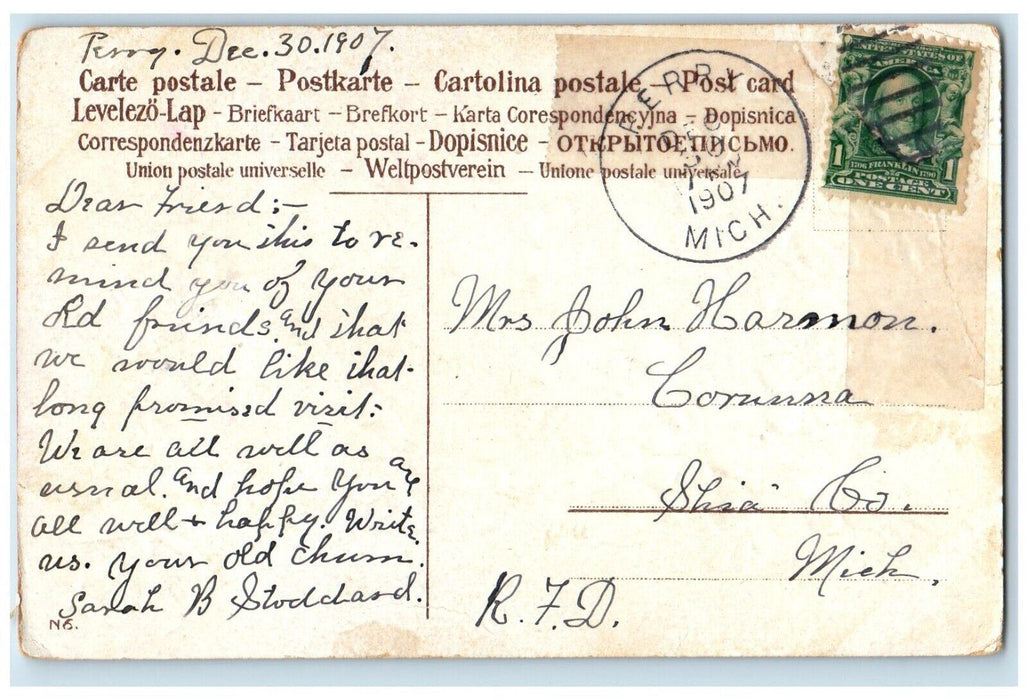 Perry. Dec. 30. 1907.
Carte postale – Postkarte – Cartolina postale – Post card
Levelező-Lap - Briefkaart – Brefkort - Karta Corespondencyjna – Dopisnica
Correspondenzkarte - Tarjeta postal - Dopisnice - ОТКРЫТОЕПИСЬМО.
Union postale universelle – Weltpostverein – Unione postale universale
PERRY
DEC
30
1907
MICH.
UNITED STATES OF
AMERICA
1 1
1706 FRANKLIN 1790
POSTAGE
ONE CENT
Dear Friend:-
I send you this to re-
mind you of your
old friends, and that
we would like that-
long promised visit:
We are all well as
usual. and hope you are
all well + happy. Write
us. your old chum.
Sarah B Stoddard.
N6.
Mrs John Harmon.
Corunna
Shia Co.
Mich.
R.F.D.